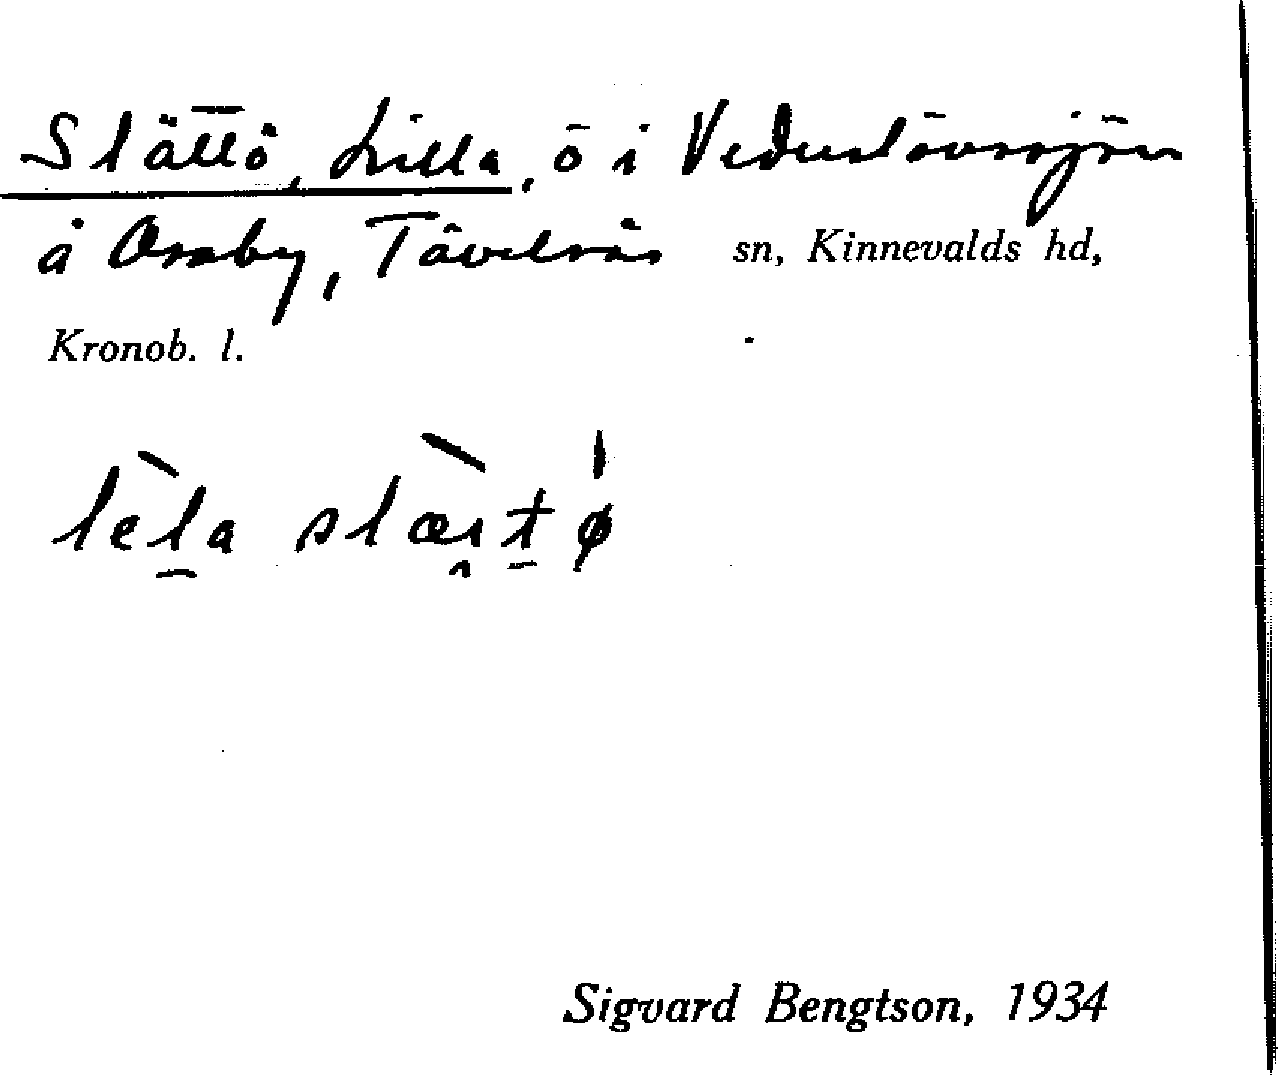 Slättö, Lilla, ö i Vederslövssjön
å Osaby, Tävelsås sn, Kinnevalds hd,
Kronob. l.
lèla slæ̀itø
Sigvard Bengtson, 1934